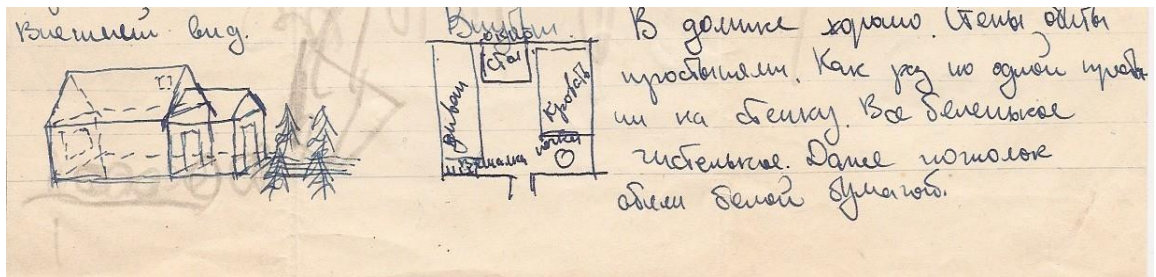 Внешний вид.
Внутри.
окно
стол
диван
кровать
вешалка
печка
В домике хорошо. Стены обиты
простынями. Как раз по одной просты-
ни на стенку. Все беленькое
чистенькое. Даже потолок
обили белой бумагой.